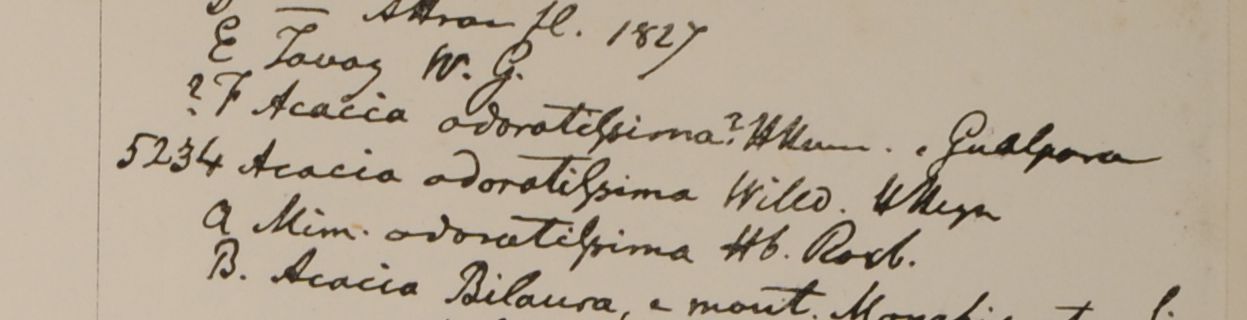 fl. 1827
E Tavoy W. G.
? F Acacia odoratissima? HHam. e Gualpara
5234 Acacia odoratissima Willd. HHeyn
a Mim. odoratissima Hb. Roxb.
B. Acacia Bilaura, e mont.